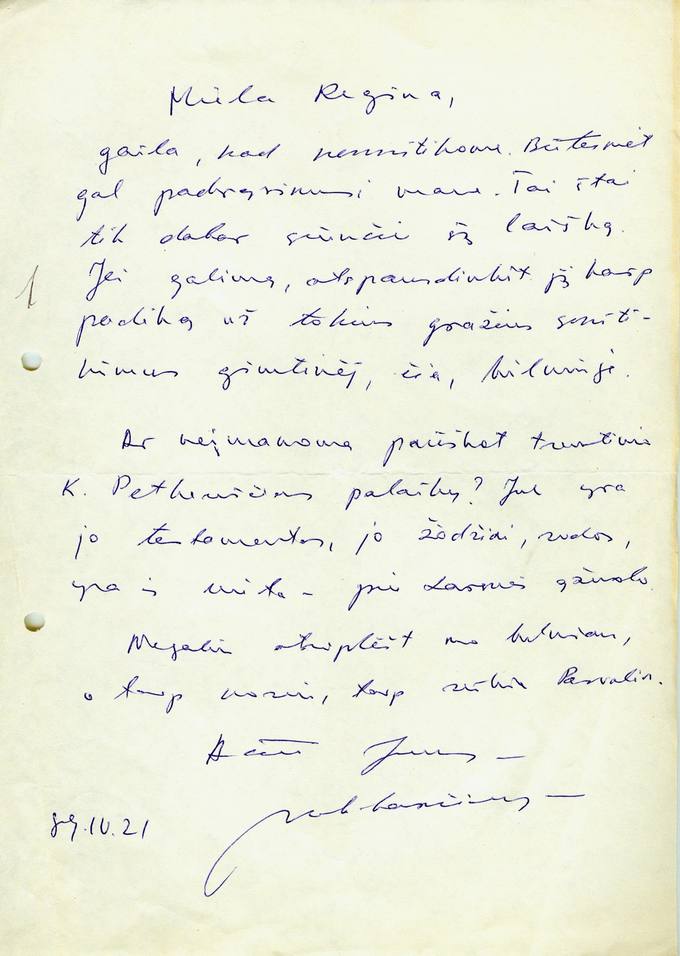 Miela Regina,
gaila, kad nesusitikome. Būtumėt
gal padrąsinusi mane. Tai štai
tik dabar siunčiu šį laišką.
Jei galima, atspausdinkit jį kaip
1
padėką už tokius gražius susiti-
kimus gimtinėj, čia, Vilniuje.
Ar neįmanoma parsivežt tremtinio
K. Petkevičiaus palaikų? Juk yra
jo testamentas, jo žodžiai, rodos,
yra ir vieta – prie ąžuolo
Negaliu atsiplėšt nuo
o taip noriu, taip reikia
Ačiū Jums –
89.IV.21